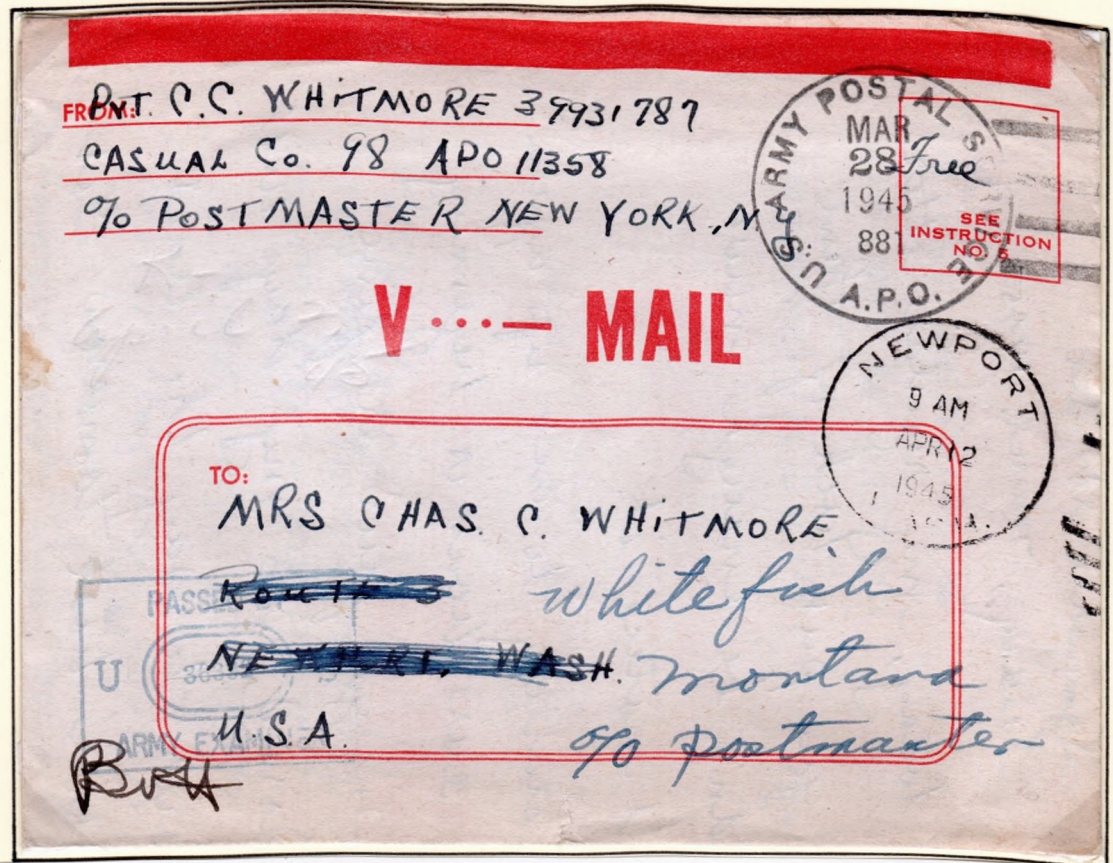 FROM: PVT. C.C. WHITMORE 39931787
CASUAL Co. 98 APO 11358
c/o POSTMASTER NEW YORK, N.Y.
U.S. ARMY POSTAL SERVICE
MAR
28
1945
881
A.P.O.
Free
SEE
INSTRUCTION
NO.
V ...— MAIL
NEWPORT
9 AM
APR 12
1945
TO:
MRS CHAS. C. WHITMORE
ROUTE 3
Whitefish
NEWPORT, WASH.
Montana
U.S.A.
c/o Postmaster
PASSED BY
U
ARMY EXAMINER